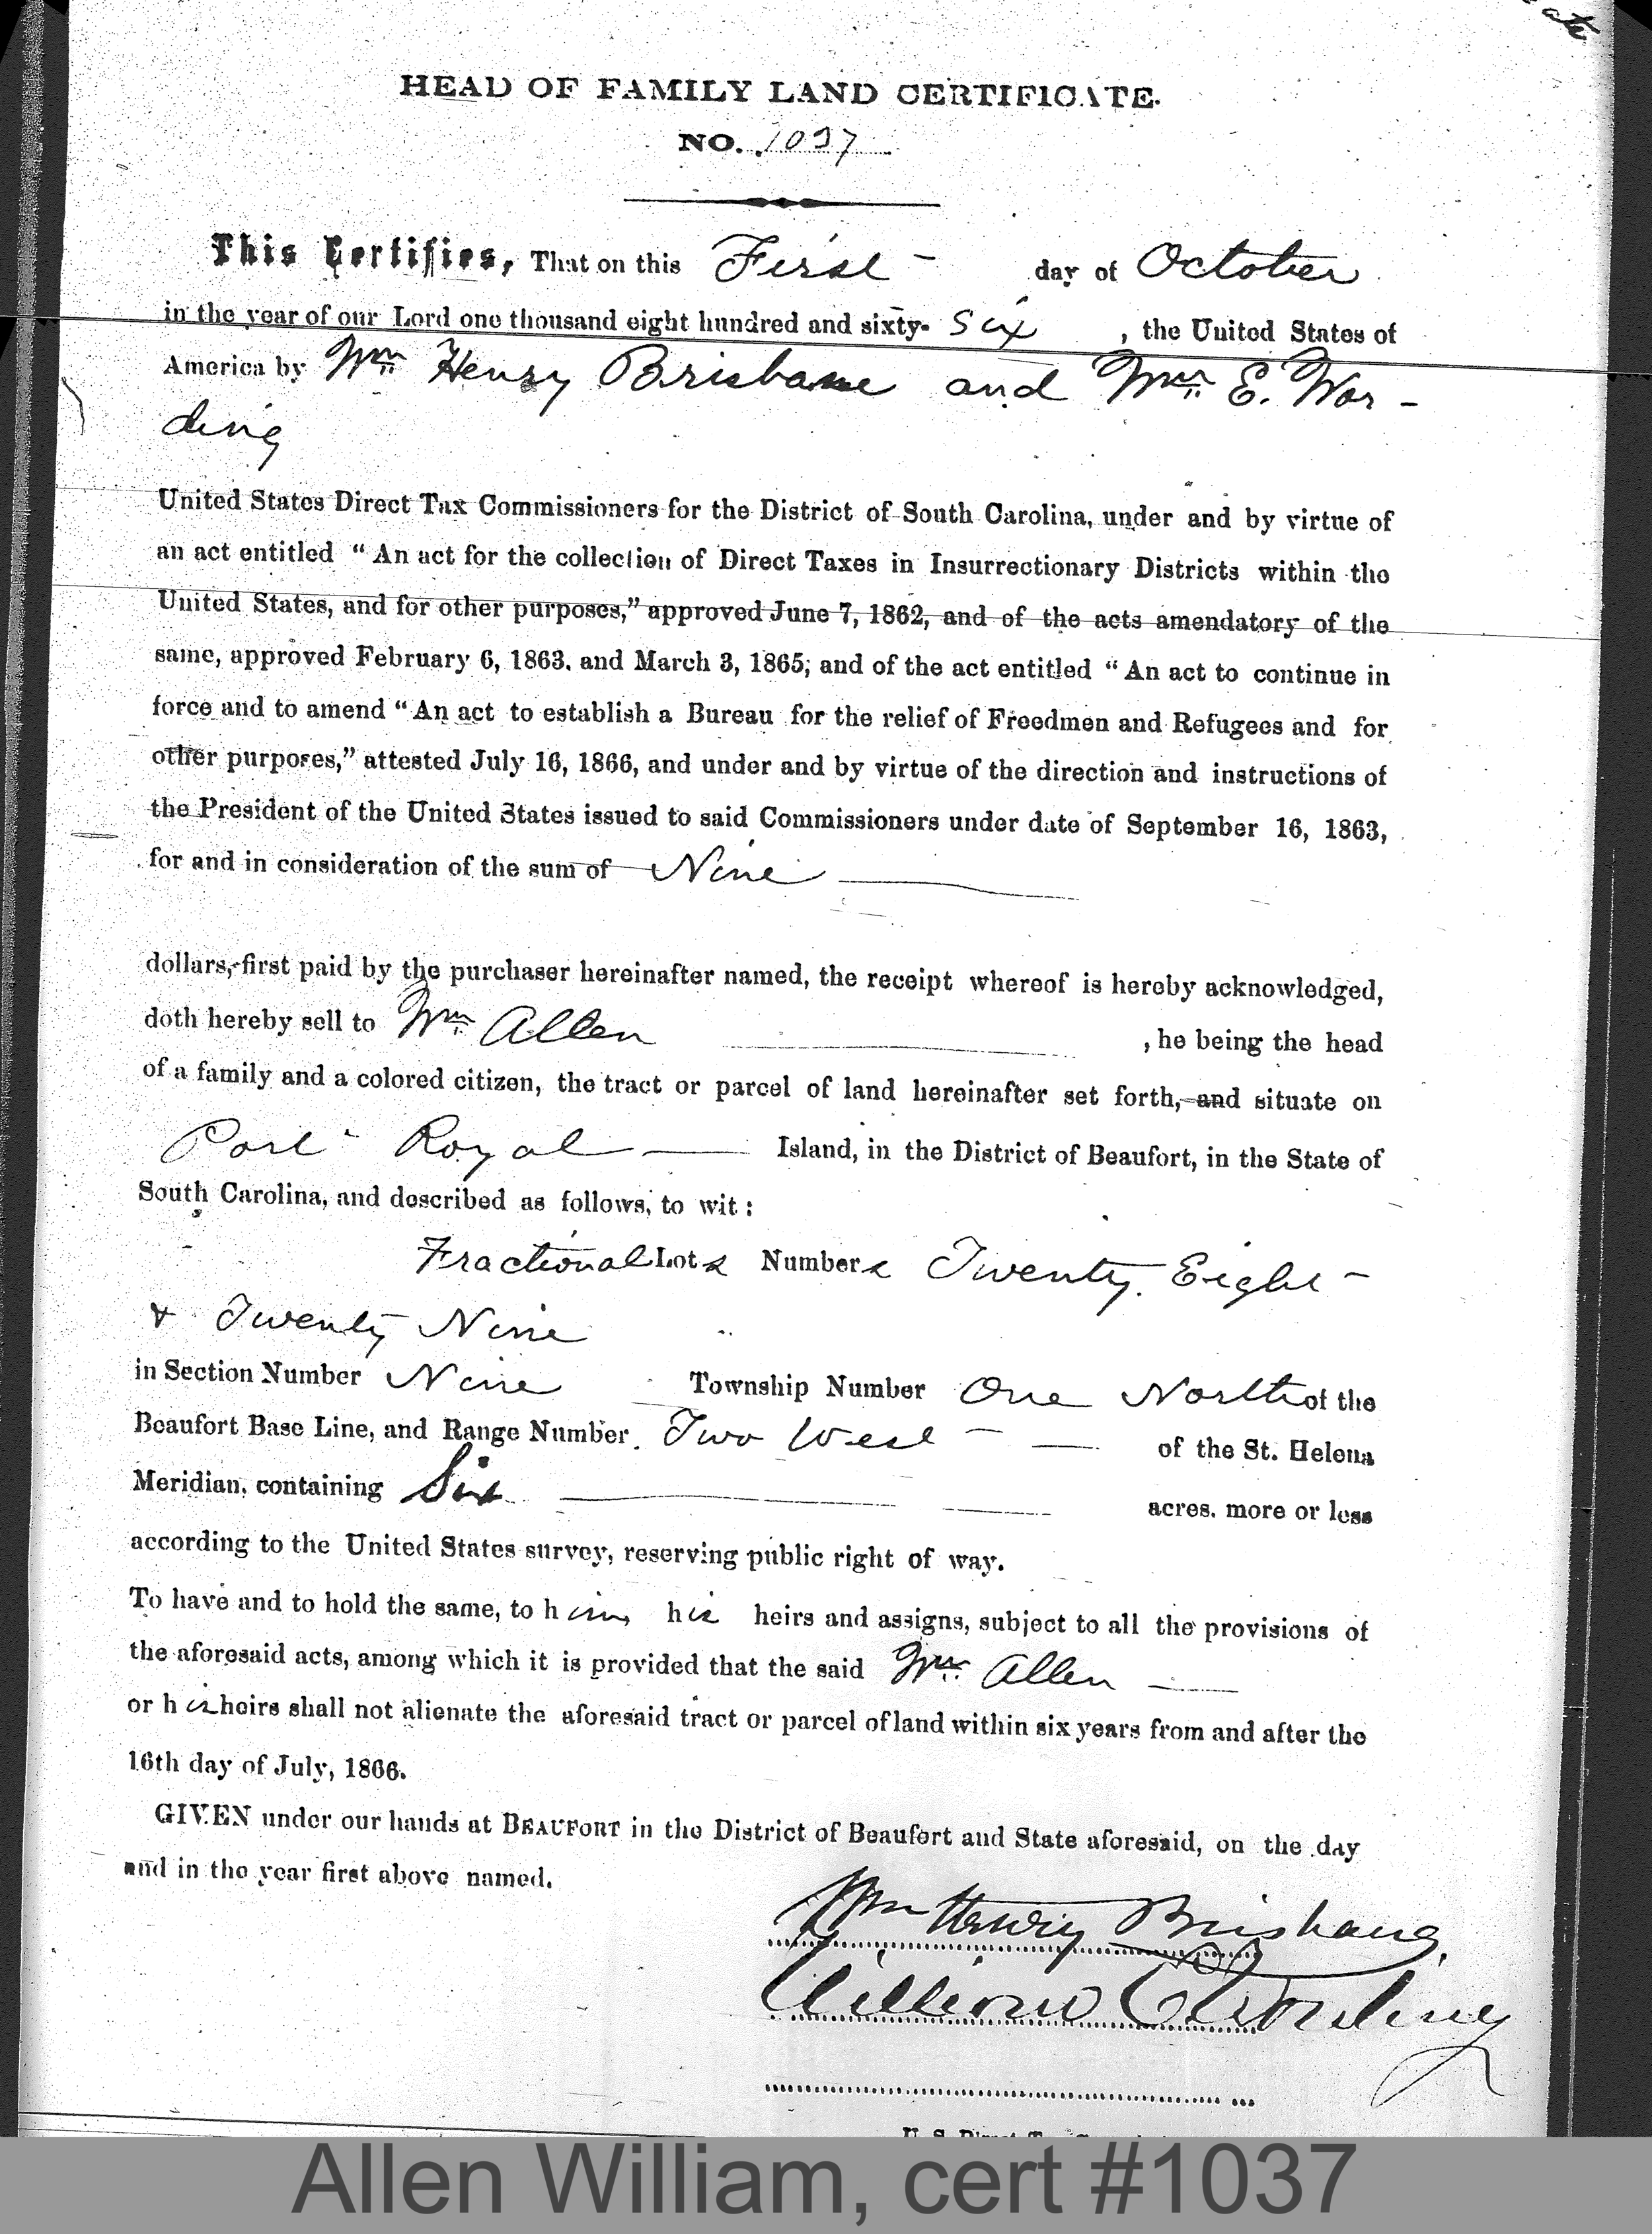 HEAD OF FAMILY LAND CERTIFICATE.
NO. 1037
This Certifies, That on this First day of October
in the year of our Lord one thousand eight hundred and sixty- six , the United States of
America by Wm Henry Brisbane and Wm E. Wor-
ding
United States Direct Tax Commissioners for the District of South Carolina, under and by virtue of
an act entitled “ An act for the collection of Direct Taxes in Insurrectionary Districts within the
United States, and for other purposes,” approved June 7, 1862, and of the acts amendatory of the
same, approved February 6, 1863. and March 3, 1865; and of the act entitled “ An act to continue in
force and to amend “ An act to establish a Bureau for the relief of Freedmen and Refugees and for
other purposes,” attested July 16, 1866, and under and by virtue of the direction and instructions of
the President of the United States issued to said Commissioners under date of September 16, 1863,
for and in consideration of the sum of Nine
dollars, first paid by the purchaser hereinafter named, the receipt whereof is hereby acknowledged,
doth hereby sell to Wm Allen , he being the head
of a family and a colored citizen, the tract or parcel of land hereinafter set forth, and situate on
Port Royal Island, in the District of Beaufort, in the State of
South Carolina, and described as follows, to wit :
Fractional Lots Numbers Twenty Eight
& Twenty Nine
in Section Number Nine Township Number One North of the
Beaufort Base Line, and Range Number Two West of the St. Helena
Meridian, containing Six acres. more or less
according to the United States survey, reserving public right of way.
To have and to hold the same, to him, his heirs and assigns, subject to all the provisions of
the aforesaid acts, among which it is provided that the said Wm Allen
or his heirs shall not alienate the aforesaid tract or parcel of land within six years from and after the
16th day of July, 1866.
GIVEN under our hands at BEAUFORT in the District of Beaufort and State aforesaid, on the day
and in the year first above named.
Wm Henry Brisbane
William E Wording
U. S. Direct Tax
Allen William, cert #1037